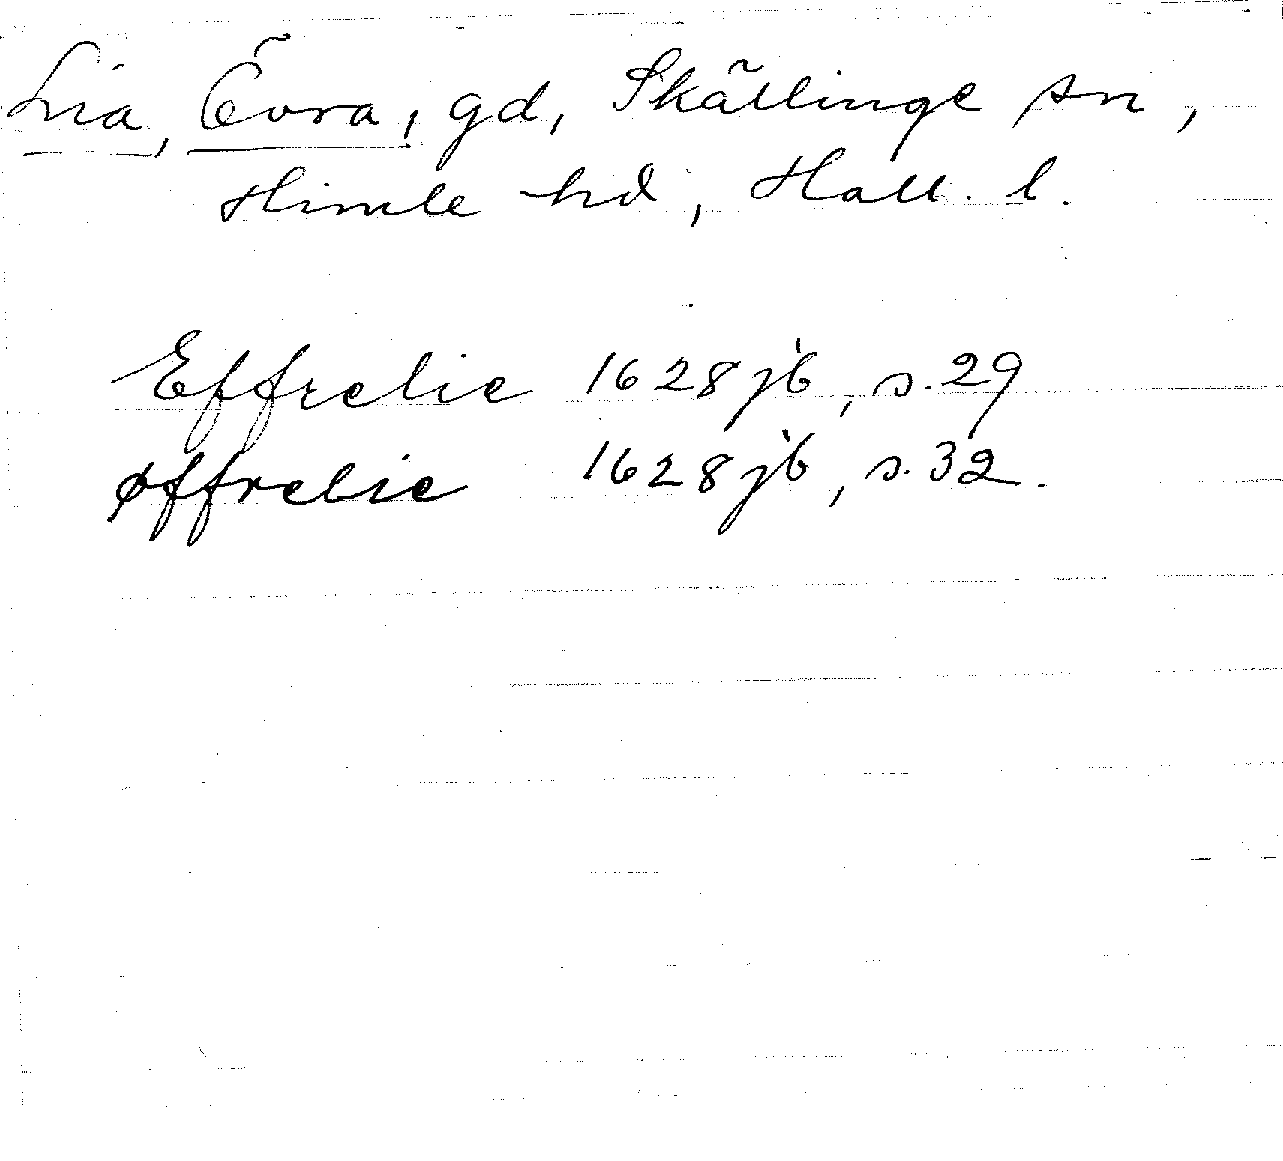 Lia, Övra, gd, Skällinge sn,
Himle hd, Hall. l.
Effrelie 1628 jb, s. 29
Øffrelie 1628 jb, s. 32.